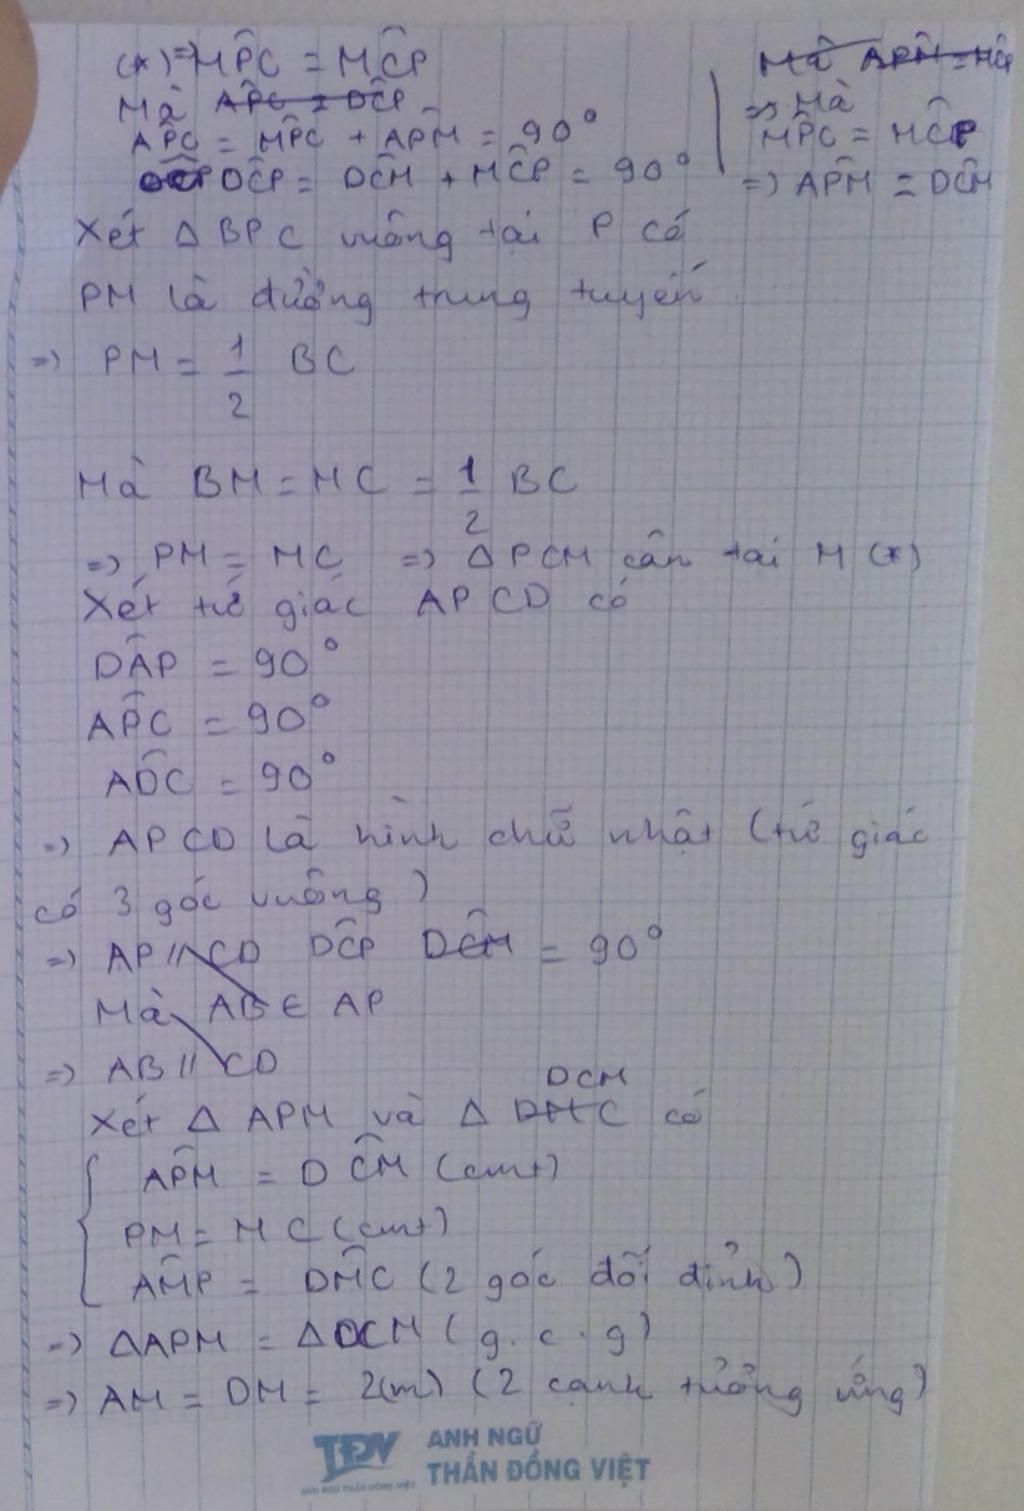 (*) => MP̂C = MĈP
Mà AP̂C = DĈP
AP̂C = MP̂C + AP̂M = 90°
DĈP = DĈM + MĈP = 90°
Mà AP̂M = MĈP
=> Mà
MP̂C = MĈP
=> AP̂M = DĈM
Xét Δ BPC vuông tại P có
PM là đường trung tuyến
=> PM = 1/2 BC
Mà BM = MC = 1/2 BC
=> PM = MC => Δ PCM cân tại M (*)
Xét tứ giác APCD có
DÂP = 90°
AP̂C = 90°
AD̂C = 90°
=> APCD là hình chữ nhật (tứ giác
có 3 góc vuông)
=> AP // CD DĈP DĈM = 90°
Mà AB ∈ AP
=> AB // CD
DCM
Xét Δ APM và Δ DMC có
AP̂M = DĈM (cmt)
PM = MC (cmt)
AM̂P = DM̂C (2 góc đối đỉnh)
=> ΔAPM = ΔDCM (g.c.g)
=> AM = DM = 2(m) (2 cạnh tưởng ứng)
TĐV ANH NGỮ
THẦN ĐỒNG VIỆT